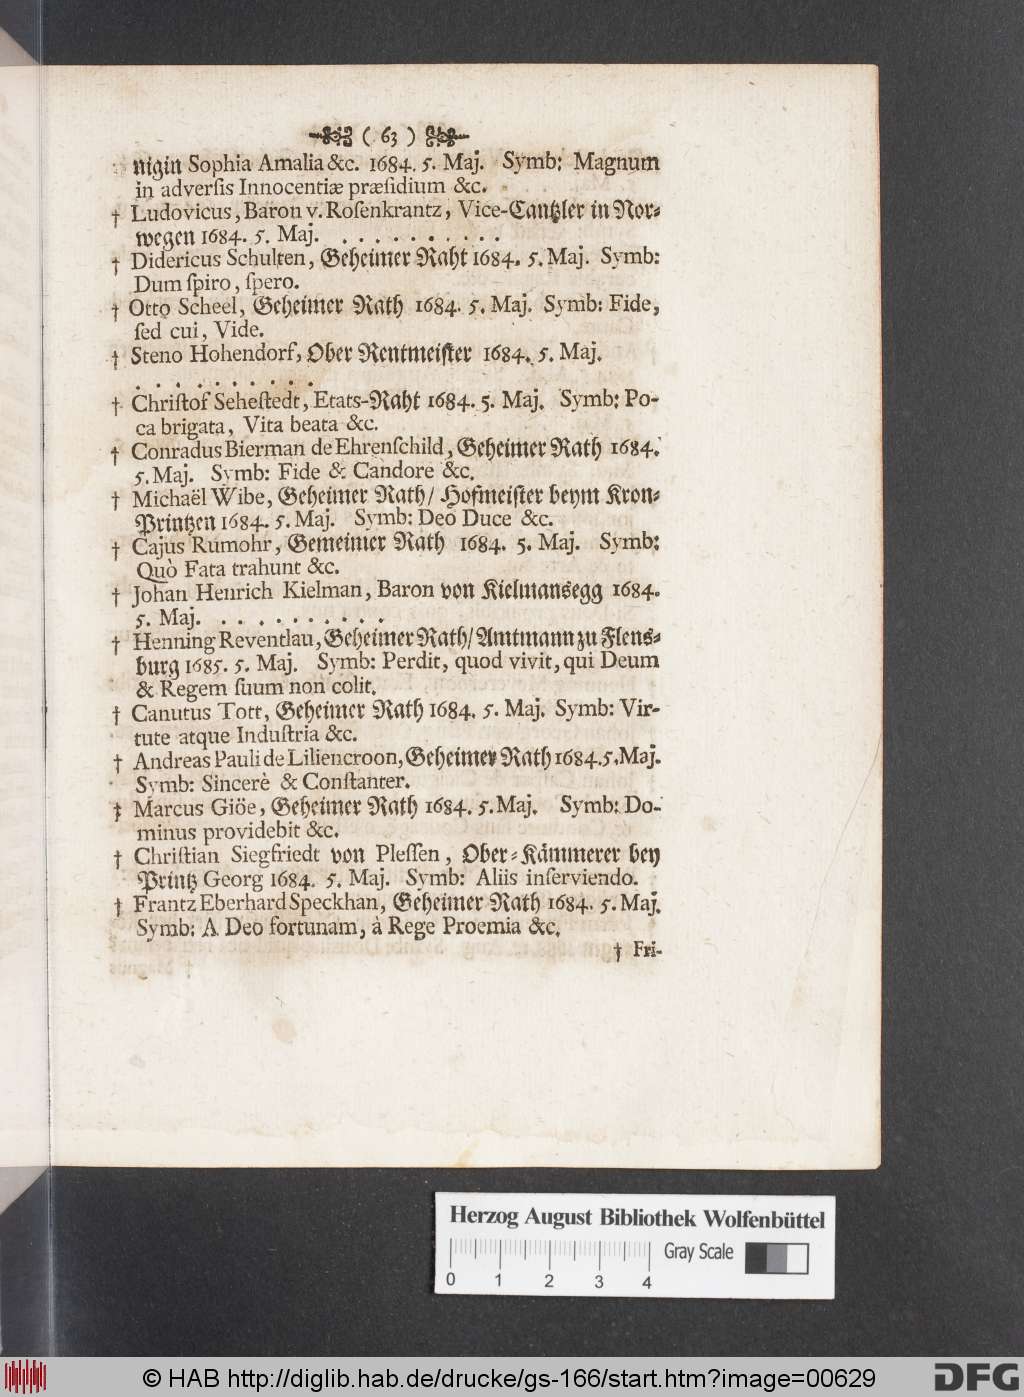 ( 63 )
nigin Sophia Amalia &c. 1684. 5. Maj. Symb: Magnum
in adversis Innocentiæ præsidium &c.
† Ludovicus, Baron v. Rosenkrantz, Vice-Cantzler in Nor-
wegen 1684. 5. Maj. . . . . . . . . . .
† Didericus Schulten, Geheimer Raht 1684. 5. Maj. Symb:
Dum spiro, spero.
† Otto Scheel, Geheimer Rath 1684. 5. Maj. Symb: Fide,
sed cui, Vide.
† Steno Hohendorf, Ober Rentmeister 1684. 5. Maj.
. . . . . . . . .
† Christof Sehestedt, Etats-Raht 1684. 5. Maj. Symb: Po-
ca brigata, Vita beata &c.
† Conradus Bierman de Ehrenschild, Geheimer Rath 1684.
5. Maj. Symb: Fide & Candore &c.
† Michaël Wibe, Geheimer Rath/ Hofmeister beym Kron-
Printzen 1684. 5. Maj. Symb: Deo Duce &c.
† Cajus Rumohr, Gemeimer Rath 1684. 5. Maj. Symb:
Quò Fata trahunt &c.
† Johan Henrich Kielman, Baron von Kielmansegg 1684.
5. Maj. . . . . . . . . .
† Henning Reventlau, Geheimer Rath/ Amtmann zu Flens-
burg 1685. 5. Maj. Symb: Perdit, quod vivit, qui Deum
& Regem suum non colit.
† Canutus Tott, Geheimer Rath 1684. 5. Maj. Symb: Vir-
tute atque Industria &c.
† Andreas Pauli de Liliencroon, Geheimer Rath 1684. 5. Maj.
Symb: Sincerè & Constanter.
† Marcus Giöe, Geheimer Rath 1684. 5. Maj. Symb: Do-
minus providebit &c.
† Christian Siegfriedt von Plessen, Ober-Kämmerer bey
Printz Georg 1684. 5. Maj. Symb: Aliis inserviendo.
† Frantz Eberhard Speckhan, Geheimer Rath 1684. 5. Maj.
Symb: A Deo fortunam, à Rege Proemia &c.
† Fri-
Herzog August Bibliothek Wolfenbüttel
Gray Scale
0 1 2 3 4
© HAB http://diglib.hab.de/drucke/gs-166/start.htm?image=00629
DFG